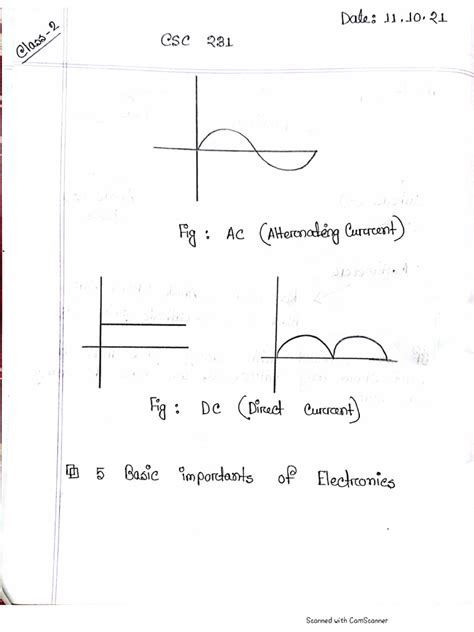 Date: 11.10.21
Class-2
CSC 231
Fig : AC (Alternating Current)
Fig : DC (Direct Current)
5 Basic importants of Electronics
Scanned with CamScanner